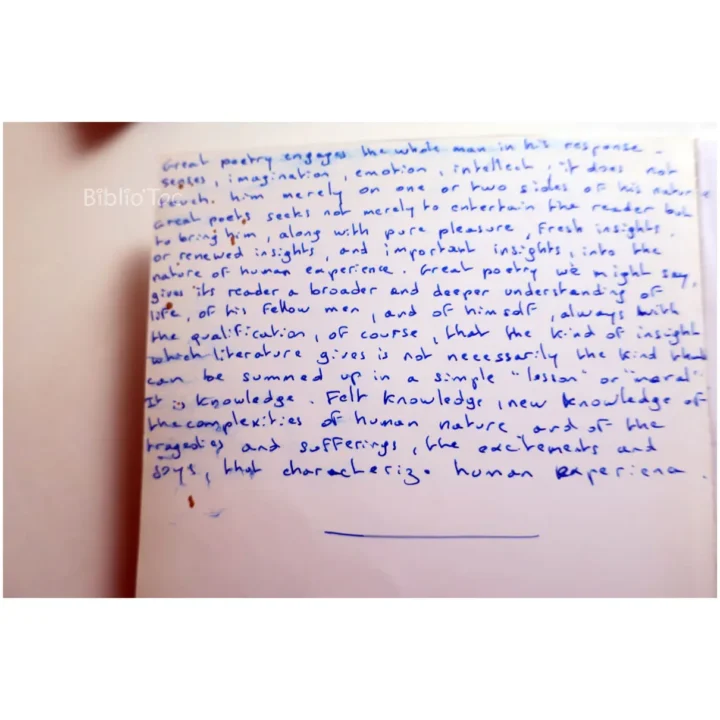 Great poetry engages the whole man in his response -
senses, imagination, emotion, intellect, it does not
touch him merely on one or two sides of his nature
Great poets seeks not merely to entertain the reader but
to bring him, along with pure pleasure, fresh insights.
or renewed insights, and important insights, into the
nature of human experience. Great poetry we might say,
gives its reader a broader and deeper understanding of
life, of his fellow men, and of himself, always with
the qualification, of course, that the kind of insight
which literature gives is not necessarily the kind that
can be summed up in a simple "lesson" or "moral"
It is knowledge. Felt knowledge, new knowledge of
the complexities of human nature and of the
tragedies and sufferings, the excitements and
joys, that characterize human experience.
Biblio'Tac